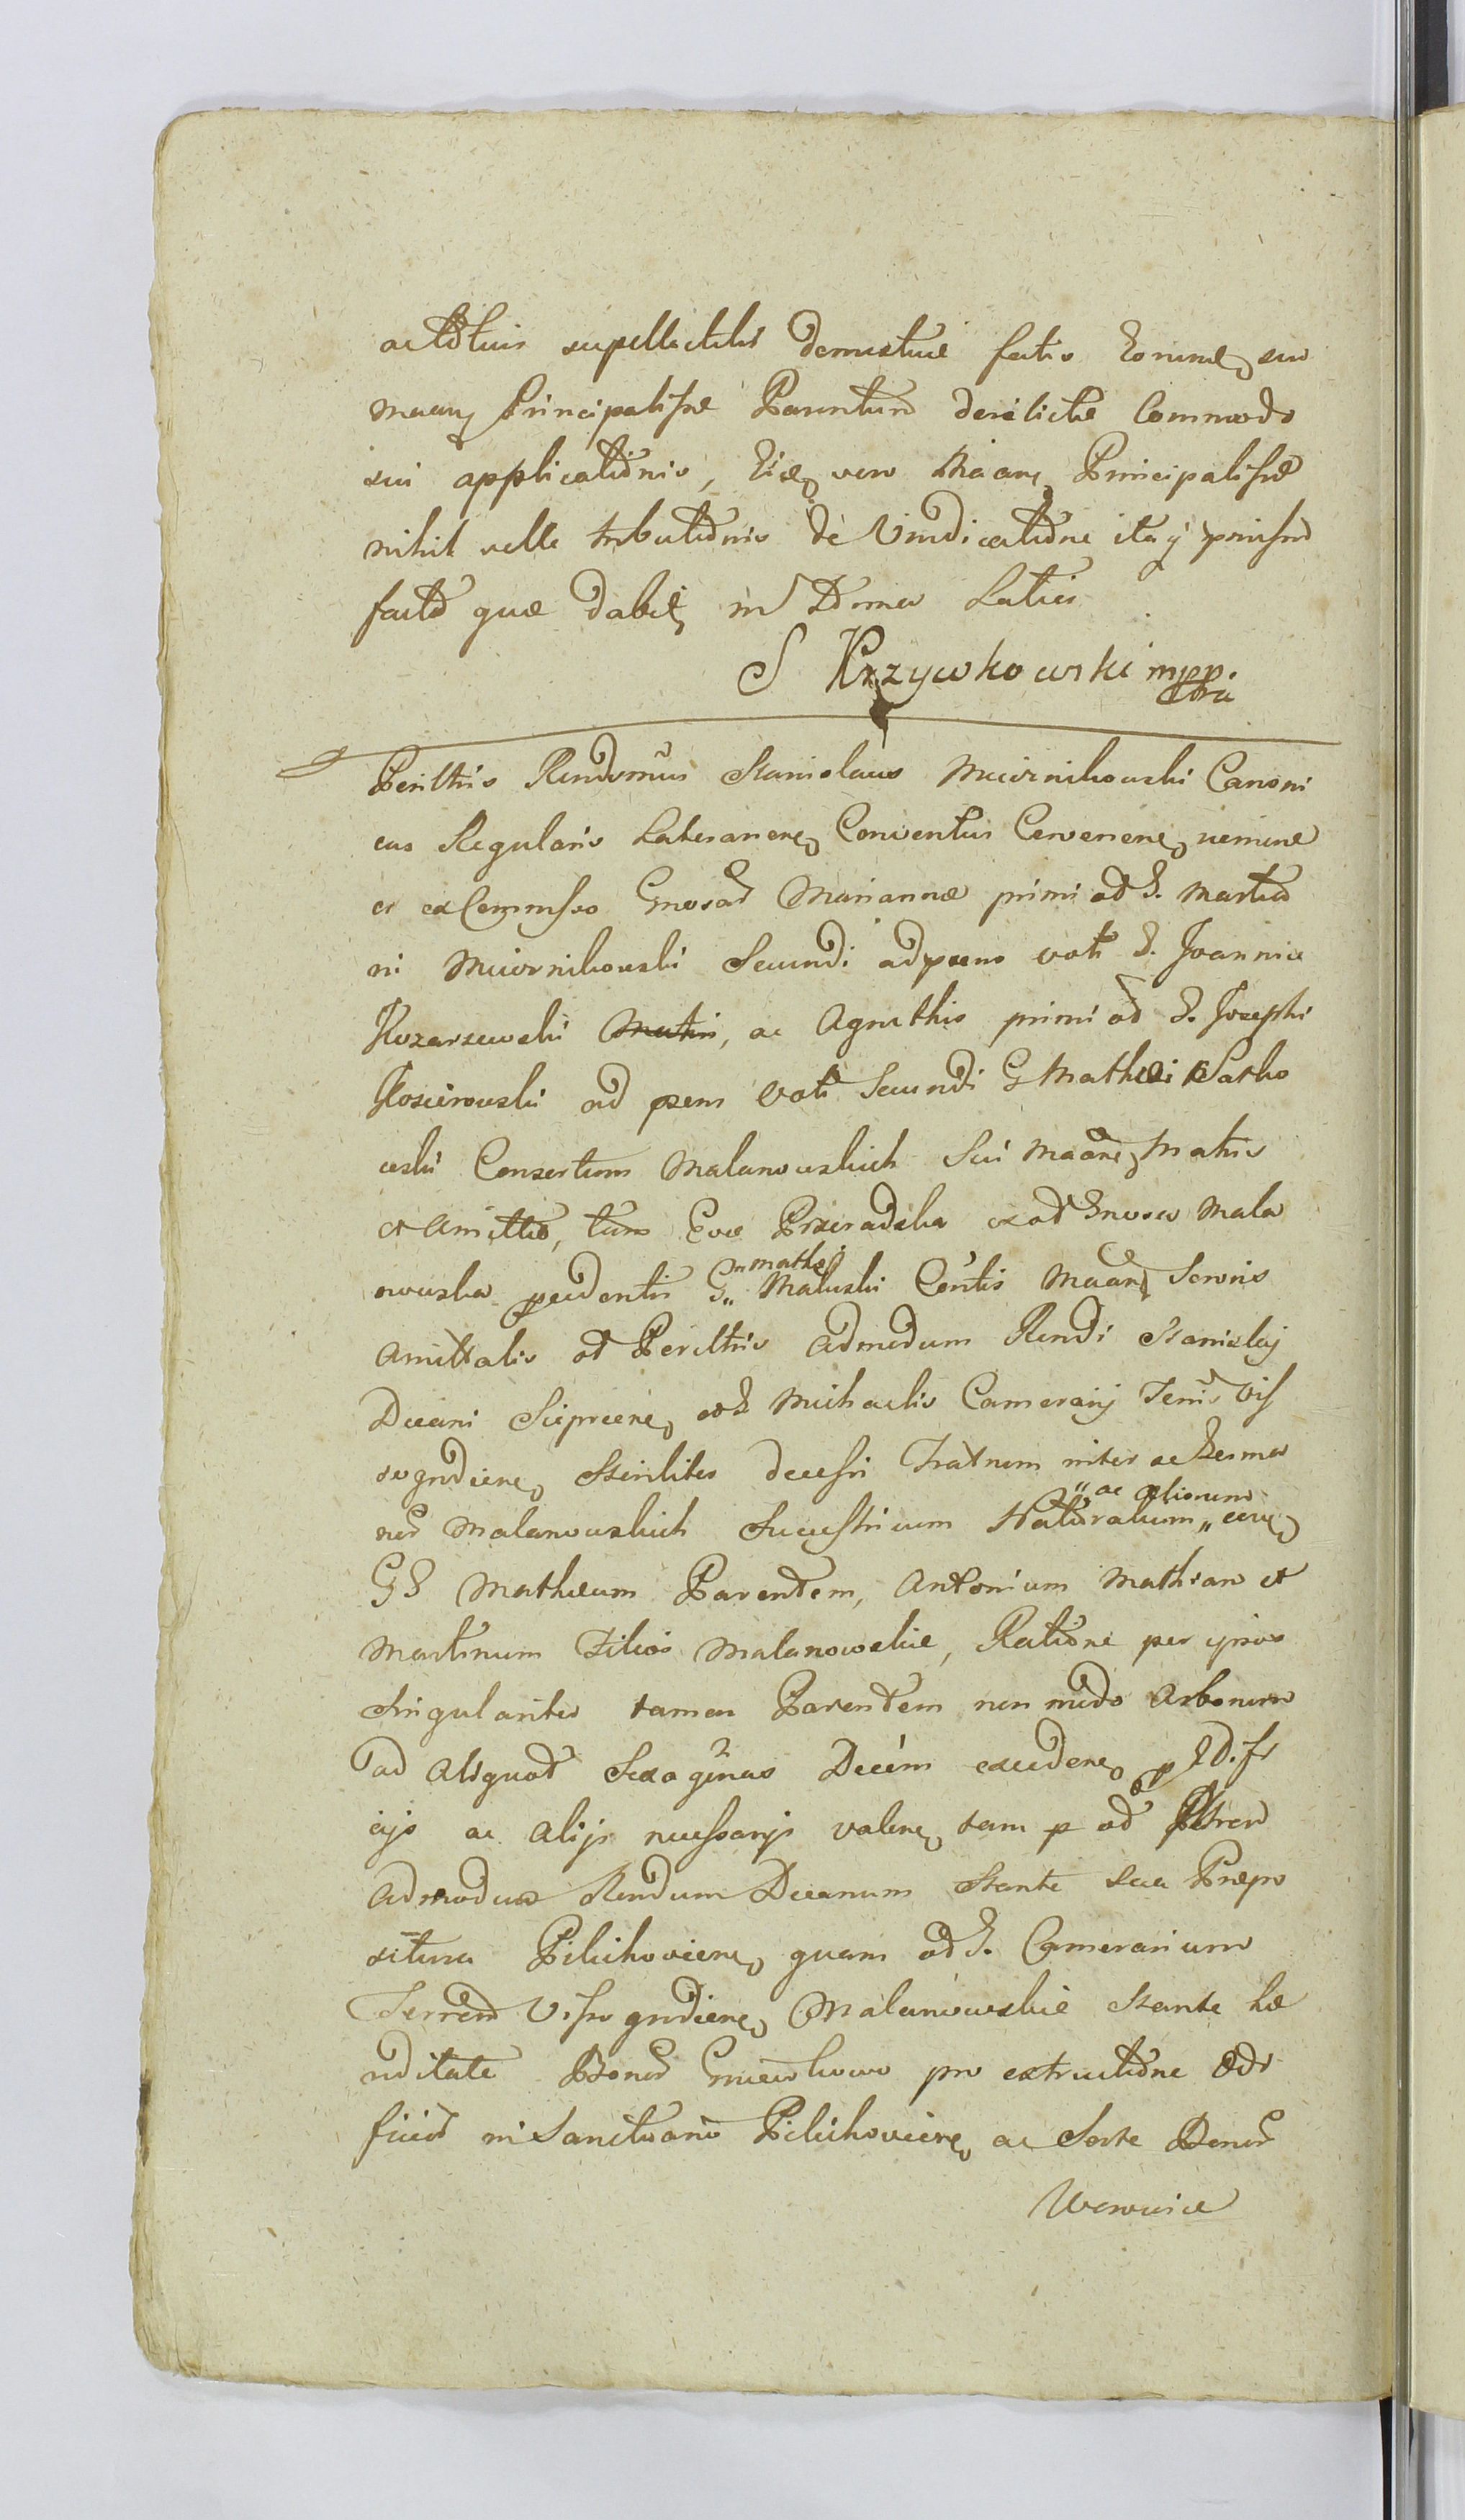 ac totius supellectilis domesticae factis Eorumq suo
Maary Principalisne Parentum derelictae Commodo
sui applicationis, Eiae vero Maare Principalisne
nihil velle tributionis de Vindicatione itaq praemisso
facto quae dabit in Termo Latius
S Krzywkowski mpp.
Perilltris Rendsmus Stanislaus Miecznikowski Canoni
cus Regularis Lateranens Conventus Cervenens nemine
et ex Commisso Gnosae Mariannae primi od G. Marti
ni Miecznikowski Secundi ad praens voti G. Joannis
Kozarzewski Matris, ac Agnethis primi od G. Josephi
Kosierowski ad praens Voti Secundi G Mathaei Sarko
wski Consortum Malanowskich Sui Maare Matris
et Amittae, tum Evae Przeradzka ex od Gnosa Mala
nowska procedentis G„ Mathei Maluski Contis Maare Sororis
Amittalis od Perilltris Admodum Rendi Stanislaj
Decani Sieprcens od G Michaelis Camerarij Terris Vis
sogrodiens Steriliter decessi Fratrum inter ac Germa
nor Malanowskich Successricum Naturalium „ac aliorum„ cone
G G Mathaeum Parentem, Antonium Mathian et
Martinum Filios Malanowskie, Ratione per ipsos
Singulariter tamen Parentem non modo Arborum
ad aliquot Sexagenas Decem excedens p Edifi
cijs ac alijs necessarijs valens tam p od
Admodum Rendum Decanum Stante sua Praepo
situra Pilichoviens quam od G. Camerarium
Terren Vissogrodiens Malanowskie Stante hae
reditate Bonor Gniewkowo pro extructione Edi
ficior in Sanctuario Pilichoviens ac Sorte Bonor
Worowice